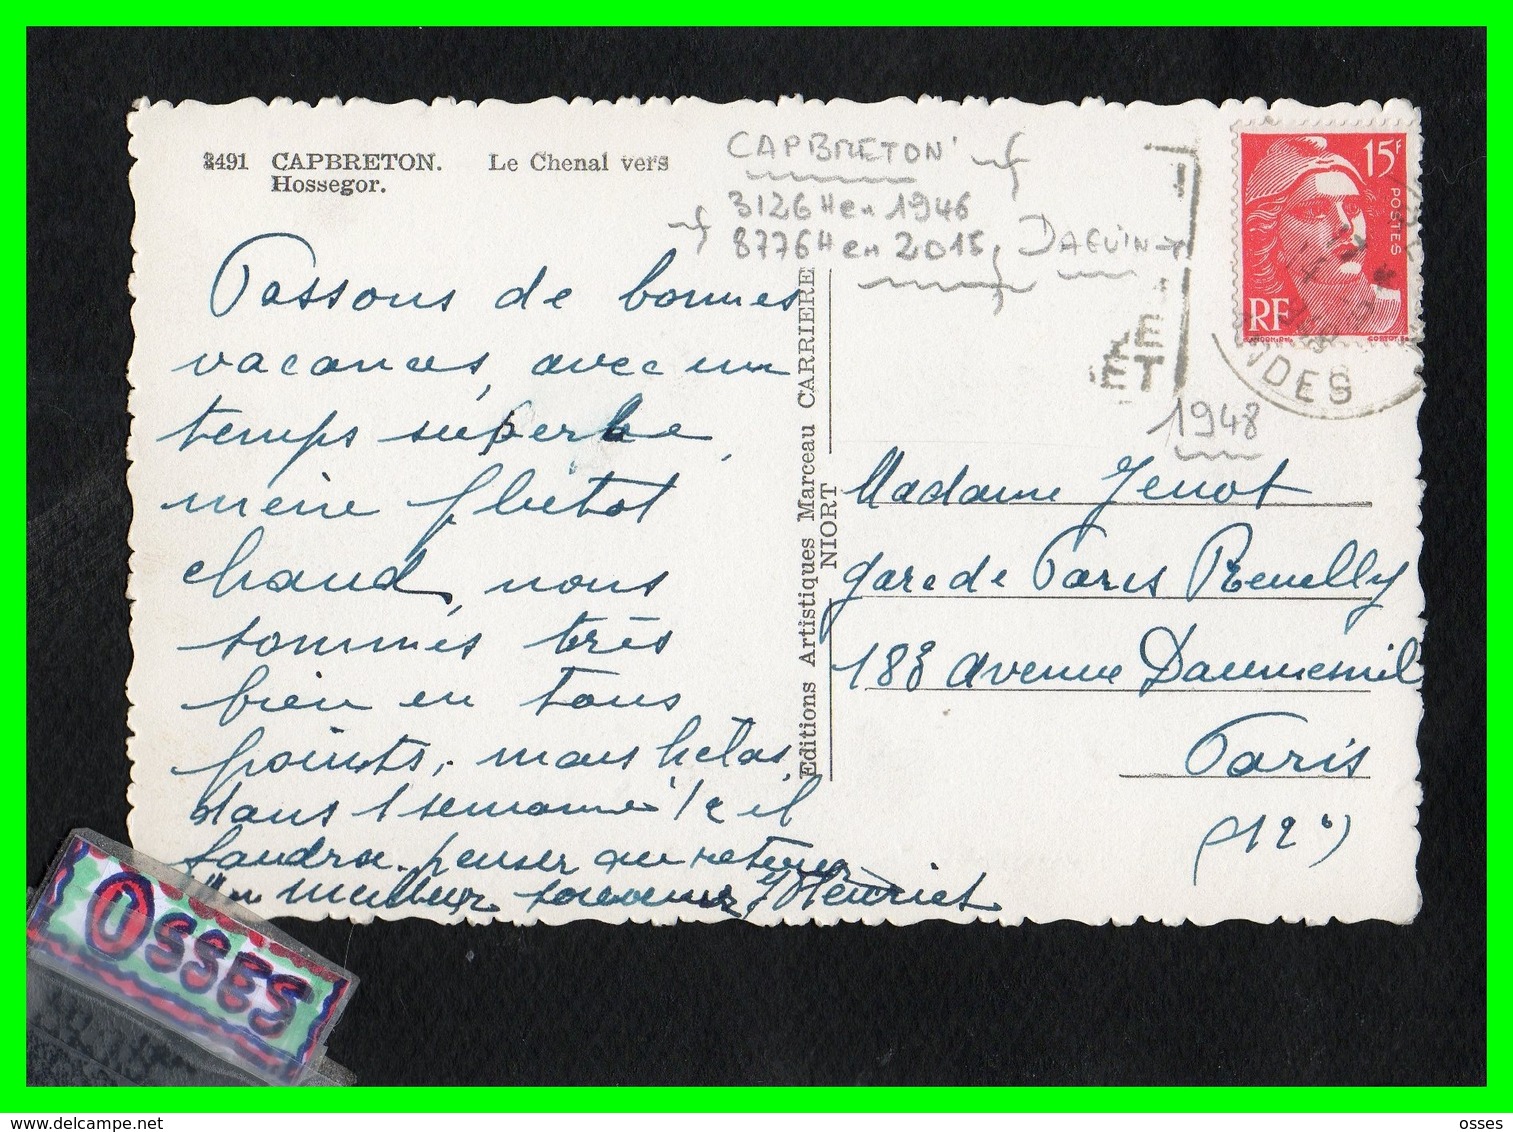 3491 CAPBRETON. Le Chenal vers
Hossegor.
CAPBRETON
3126 H en 1946
8776 H en 2015
DAGUIN
15F
POSTES
RF
LE
ET
NDES
1948
Passons de bonnes
vacances, avec un
temps superbe,
même plutot
chaud, nous
sommes très
bien en tous
points, mais helas,
dans 1 semaine 1/2 il
faudra penser au retour
meilleur souvenir Henriet
Editions Artistiques Marceau CARRIERE
NIORT
Madame Jenot
gare de Paris Reuilly
183 avenue Daumesnil
Paris
(12e)
OSSES
http://www.delcampe.net
osses